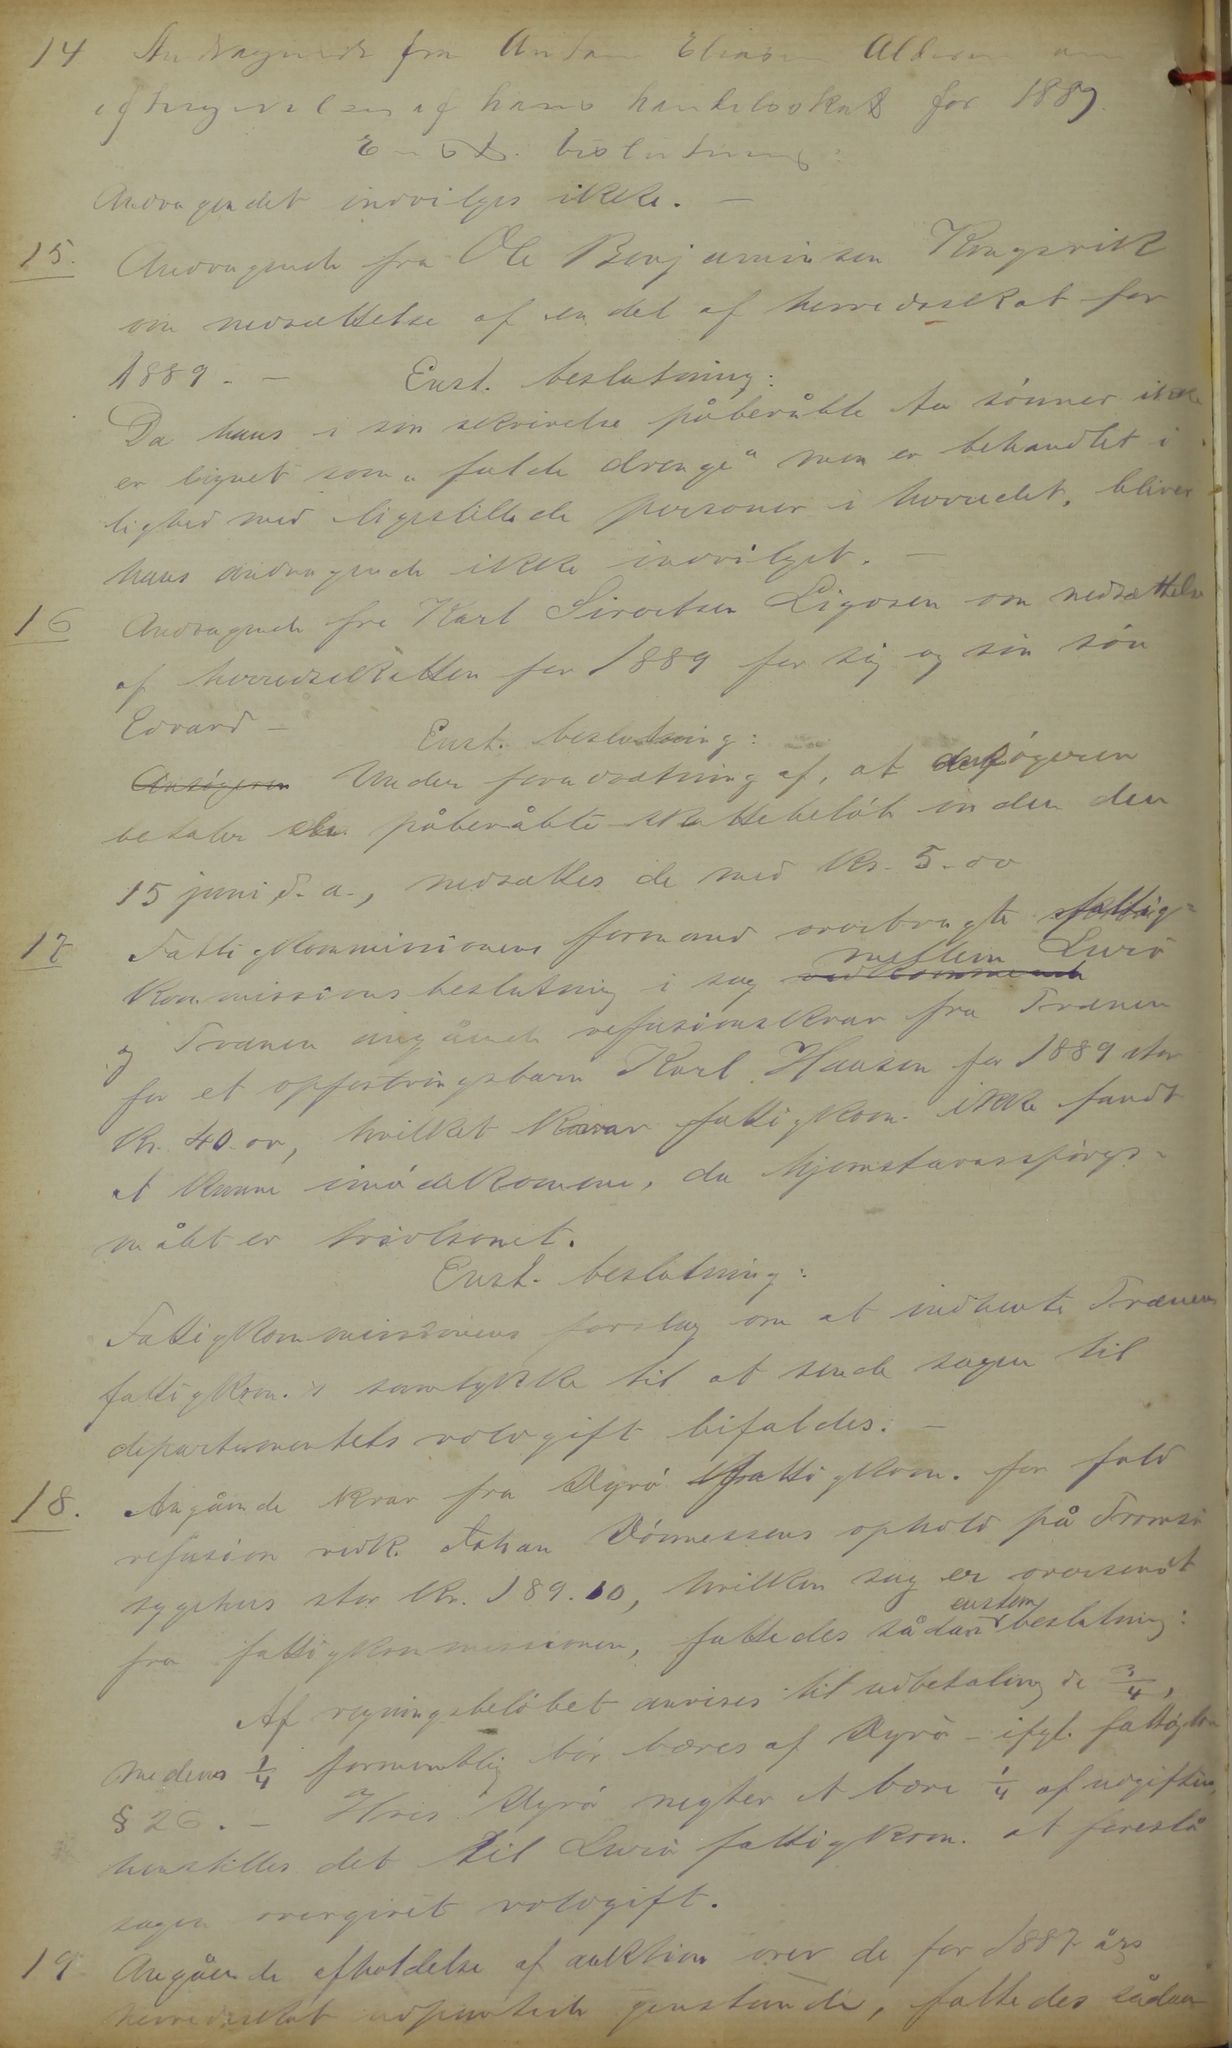 14 Andragende fra Anton Eliasen Aldersun om
eftergivelsen af hans handelsskat for 1889.
Enst. beslutning:
Andragendet indvilges ikke. –
15. Andragende fra Ole Benjaminsen Kongsvik
om nedsættelse af en del af herredsskat for
1889. – Enst. beslutning:
Da hans i sin skrivelse påberåbte to sønner ikke
er lignet som "fulde drenge" men er behandlet i
lighed med ligestillede personer i herredet, bliver
hans andragende ikke indvilget. –
16 Andragende fra Karl Sivertsen Ligosen om nedsættelse
af herredsskatten for 1889 for sig og sin søn
Edvard – Enst. beslutning:
Ansøgeren Under forudsætning af, at ansøgeren
betaler de påberåbte skattebeløb inden den
15 juni d. a., nedsættes de med Kr. 5.00
17 Fattigkommissionens formand overbragte fattig-
kommissionsbeslutning i sag vedkommende mellem Lurö
og Trænen angående refusionskrav fra Trænen
for et opfostringsbarn Karl Hansen for 1889 stor
Kr. 40.00, hvilket krav fattigkom. ikke fandt
at kunne imødekomme, da hjemstavnsspörgs-
målet er tvivlsomt.
Enst. beslutning:
Fattigkommissionens forslag om at indhente Trænens
fattigkom.s samtykke til at sende sagen til
departementets voldgift bifaldes. –
18. Angående krav fra Dyrö fattigkom. for fuld
refusion vedk. Johan Dönnessens ophold på Tromsö
sygehus stor Kr. 189.10, hvilken sag er oversendt
fra fattigkommissionen, fattedes sådan enstem beslutning:
Af regningsbelöbet anvises til udbetaling de 3/4,
medens 1/4 formentlig bör bæres af Dyrö – ifgl. fattiglov
§ 26. – Hvis Dyrö negter at bære 1/4 af udgiften,
henstilles det til Lurö fattigkom. at foreslå
sagen overgivet voldgift.
19 Angående afholdelse af auktion over de for 1887 års
herredsskat udpantede genstande, fattedes sådan